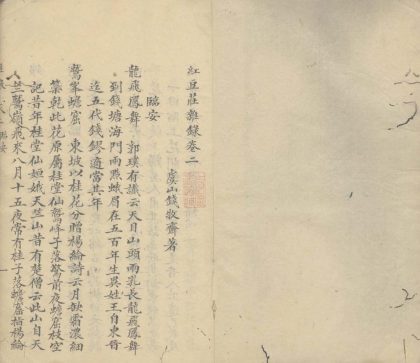 紅豆莊雜錄卷二
虞山錢牧齋著
臨安
龍飛鳳舞 郭璞有讖云天目山頭兩乳長龍飛鳳舞
到錢塘海門雨點峨眉在五百年生異姓王自東晉
迄五代錢鏐適當其年
鷲峯蟾窟 東坡以桂花分贈楊綸詩云月缺霜濃細
蘂乾此花原屬桂堂仙鷲峰子落驚前夜蟾窟枝空
記昔年桂堂仙姮娥天竺山昔有楚僧云此山自天
竺鷲嶺飛來八月十五夜常有桂子落蟾窟楊綸